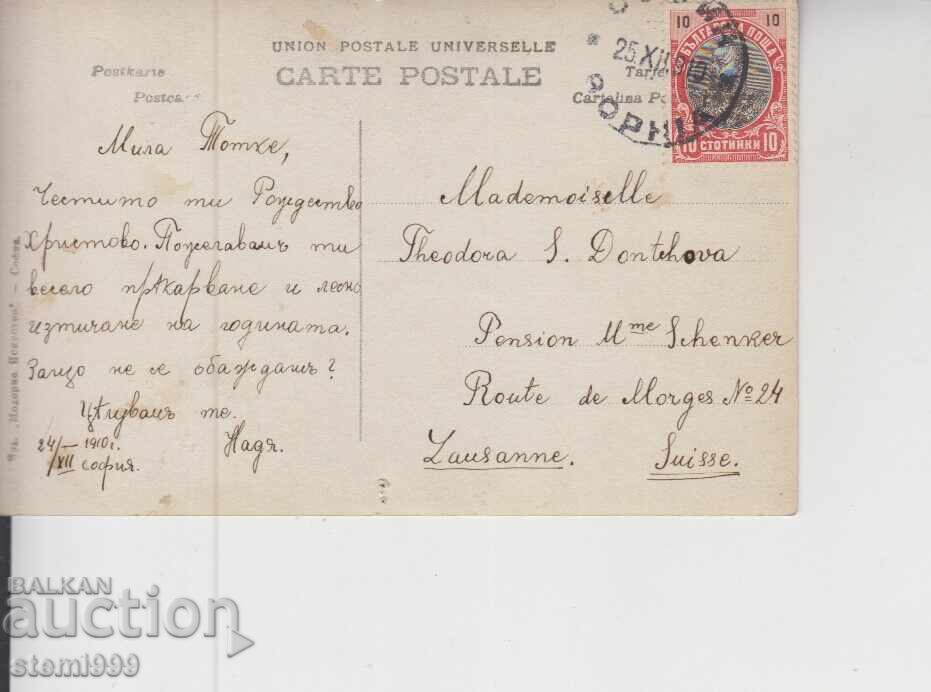 UNION POSTALE UNIVERSELLE
CARTE POSTALE
Postkarte
Postcard
Cartolina Po
10 10
БЪЛГАРСКА ПОЩА
10 СТОТИНКИ 10
25.XII
Мила Тотке,
Честито ти Рождество
Христово. Пожелавамъ ти
весело прѣкарване и лесно
изтичане на годината.
Защо не се обаждашъ?
Цѣлувамъ те.
24/XII 1910г. Надя.
София.
Mademoiselle
Theodora S. Dontchova
Pension Mme Schenker
Route de Morges No 24
Lausanne. Suisse.
"Модерно Искуство" – София
BALKAN
auction
stemi999